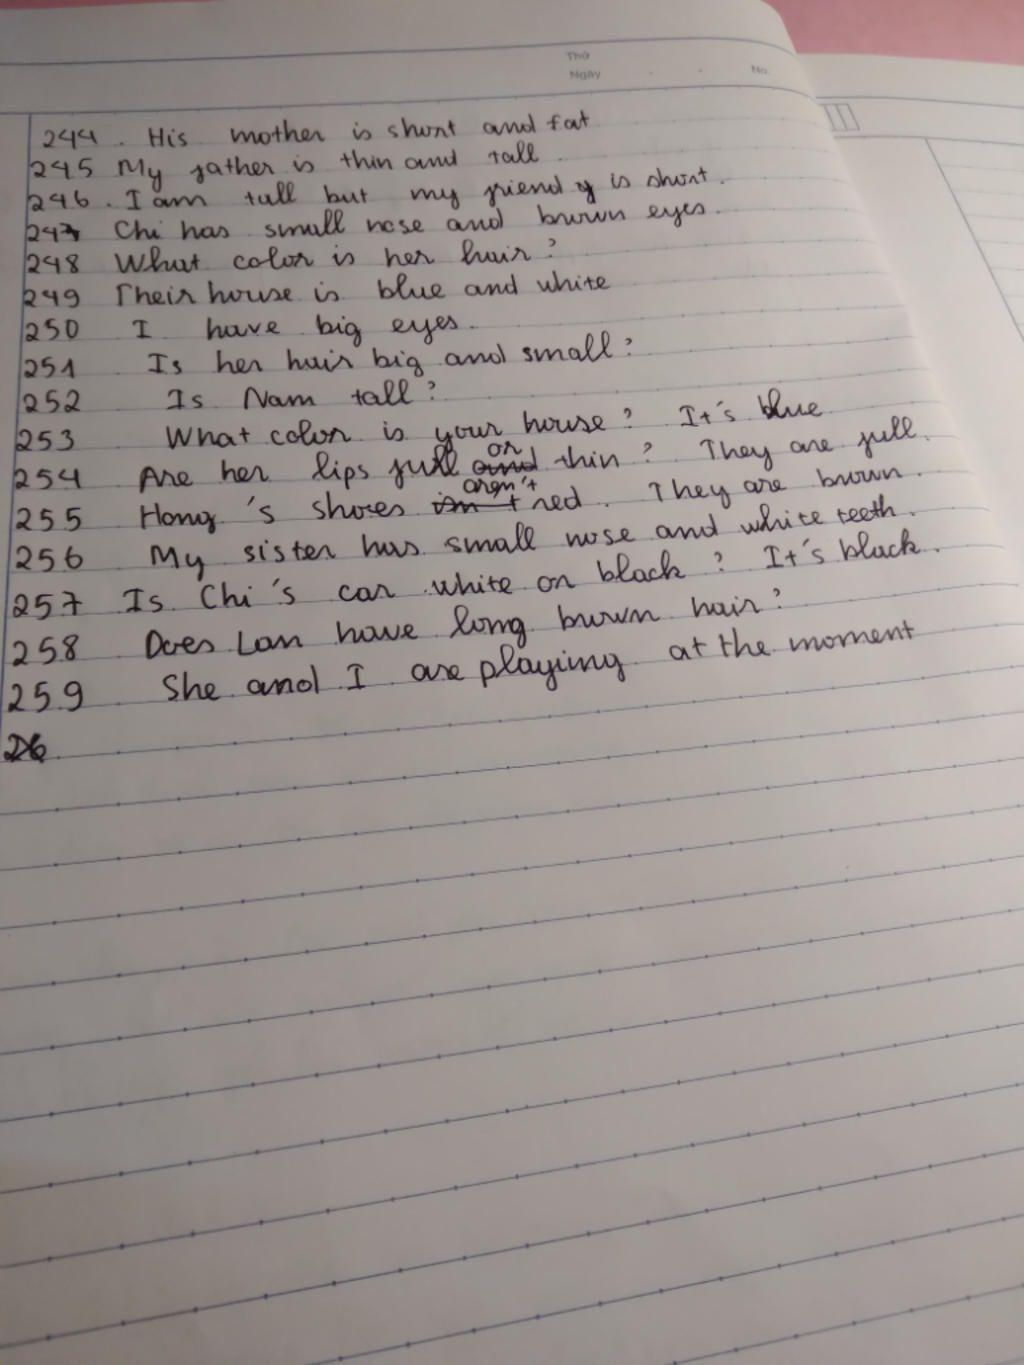 Thứ
Ngày No.
244. His mother is short and fat
245 My father is thin and tall
246. I am tall but my friend is short.
247 Chi has small nose and brown eyes.
248 What color is her hair?
249 Their house is blue and white
250 I have big eyes.
251 Is her hair big and small?
252 Is Nam tall?
253 What color is your house? It's blue
254 Are her lips full or thin? They are full.
255 Hong's shoes aren't red. They are brown.
256 My sister has small nose and white teeth.
257 Is Chi's car white or black? It's black.
258 Does Lan have long brown hair?
259 She and I are playing at the moment